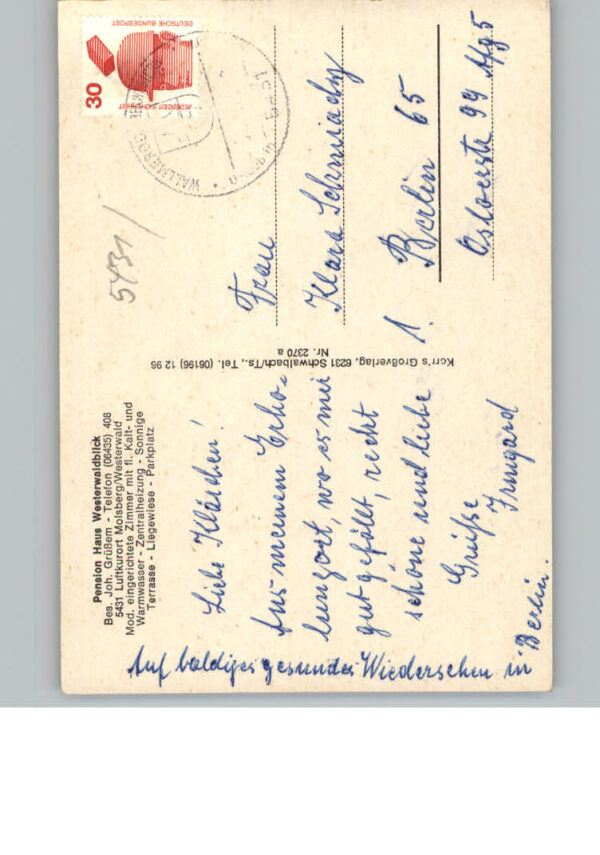 Pension Haus Westerwaldblick
Bes. Joh. Grüßem - Telefon (06435) 408
5431 Luftkurort Molsberg/Westerwald
Mod. eingerichtete Zimmer mit fl. Kalt- und
Warmwasser - Zentralheizung - Sonnige
Terrasse - Liegewiese - Parkplatz
5431/
Liebe Klärchen!
Aus meinem Erho-
lungsort, wo es mir
gut gefällt, recht
schöne und liebe
Grüße
Irmgard
Auf baldiges gesundes Wiedersehen in
Berlin.
Korr's Großverlag, 6231 Schwalbach/Ts., Tel. (06196) 12 96
Nr. 2370 a
DEUTSCHE BUNDESPOST
30
JEDERZEIT SICHERHEIT
WALLMEROD
5431
Frau
Klara Schmiady
1. Berlin 65
Osloerstr 99 Afg 5